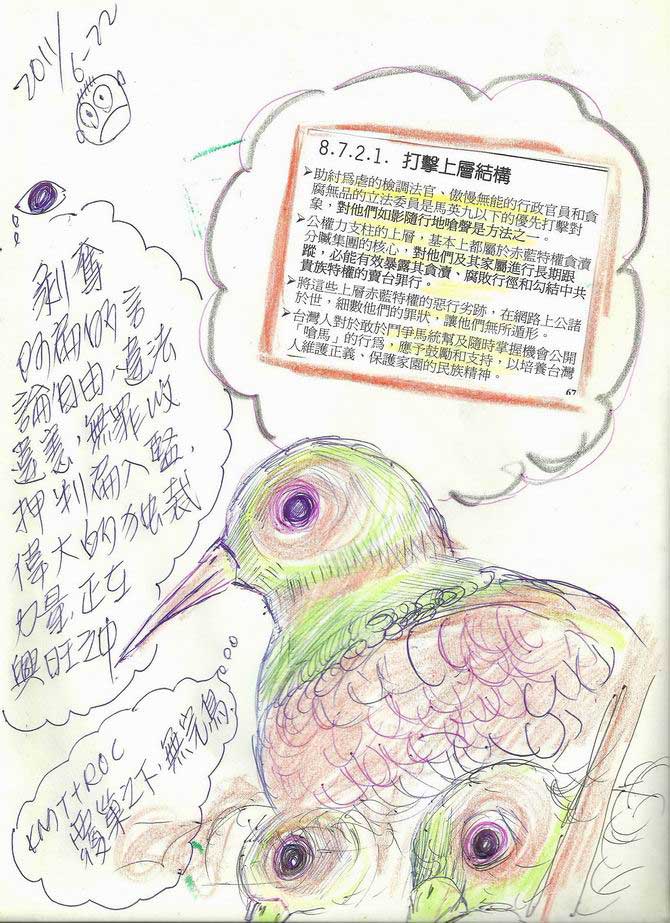 2011/6-22
8.7.2.1. 打擊上層結構
➢助紂爲虐的檢調法官、傲慢無能的行政官員和貪
腐無品的立法委員是馬英九以下的優先打擊對
象,對他們如影隨行地嗆聲是方法之一。
➢公權力支柱的上層,基本上都屬於赤藍特權貪瀆
分贓集團的核心,對他們及其家屬進行長期跟
蹤,必能有效暴露其貪瀆、腐敗行徑和勾結中共
貴族特權的賣台罪行。
➢將這些上層赤藍特權的惡行劣跡,在網路上公諸
於世,細數他們的罪狀,讓他們無所遁形。
➢台灣人對於敢於鬥爭馬統幫及隨時掌握機會公開
「嗆馬」的行爲,應予鼓勵和支持,以培養台灣
人維護正義、保護家園的民族精神。
67
剝奪
阿扁的言
論自由,違法
違憲,無罪收
押判扁入監,
偉大的独裁
力量,正在
興旺沖
KMT+ROC
覆巢之下,無完鳥.